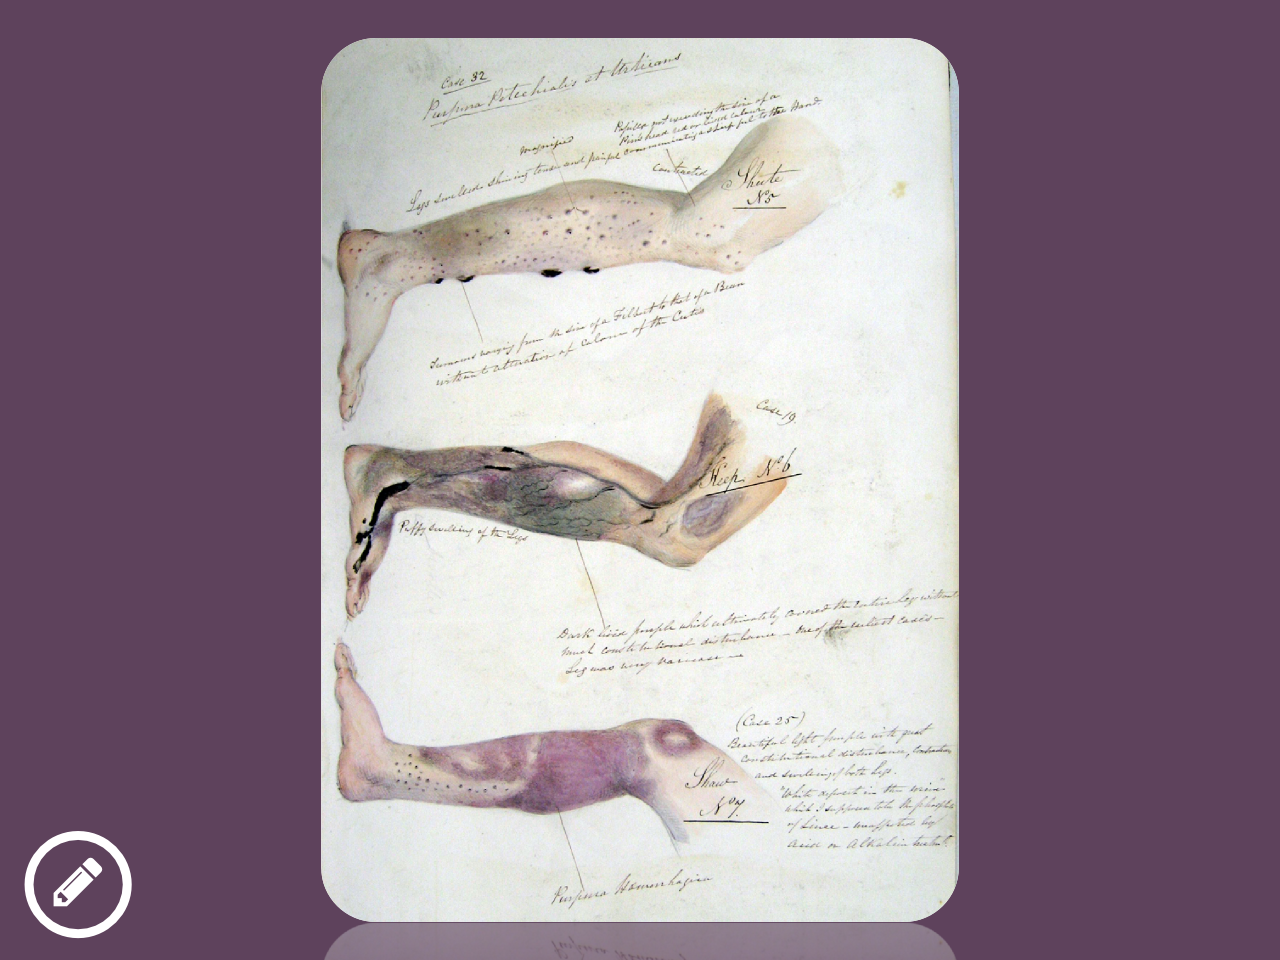 Case 32
Purpura Petechialis et Urticans
magnified
Papillæ not exceeding the size of a
Pin's head red or livid colour
communicating a sharp feel to the Hand.
Legs swelled shining tense and painful
contracted
Shute
No 5
Tumours varying from the size of a Filbert to that of a Bean
without alteration of colour of the Cutis
Case 19.
Keep No 6
Puffy swelling of the Legs
Dark livid purple which ultimately covered the entire leg without
much constitutional disturbance - One of the earliest cases -
Leg was very varicose -
(Case 25)
Beautiful light purple with great
constitutional disturbance, contraction
and swelling of both Legs.
"White deposit in the urine"
which I supposed to be the phosphate
of Lime - unaffected by
acid or Alkaline
Shaw
No 7.
Purpura Hæmorrhagica